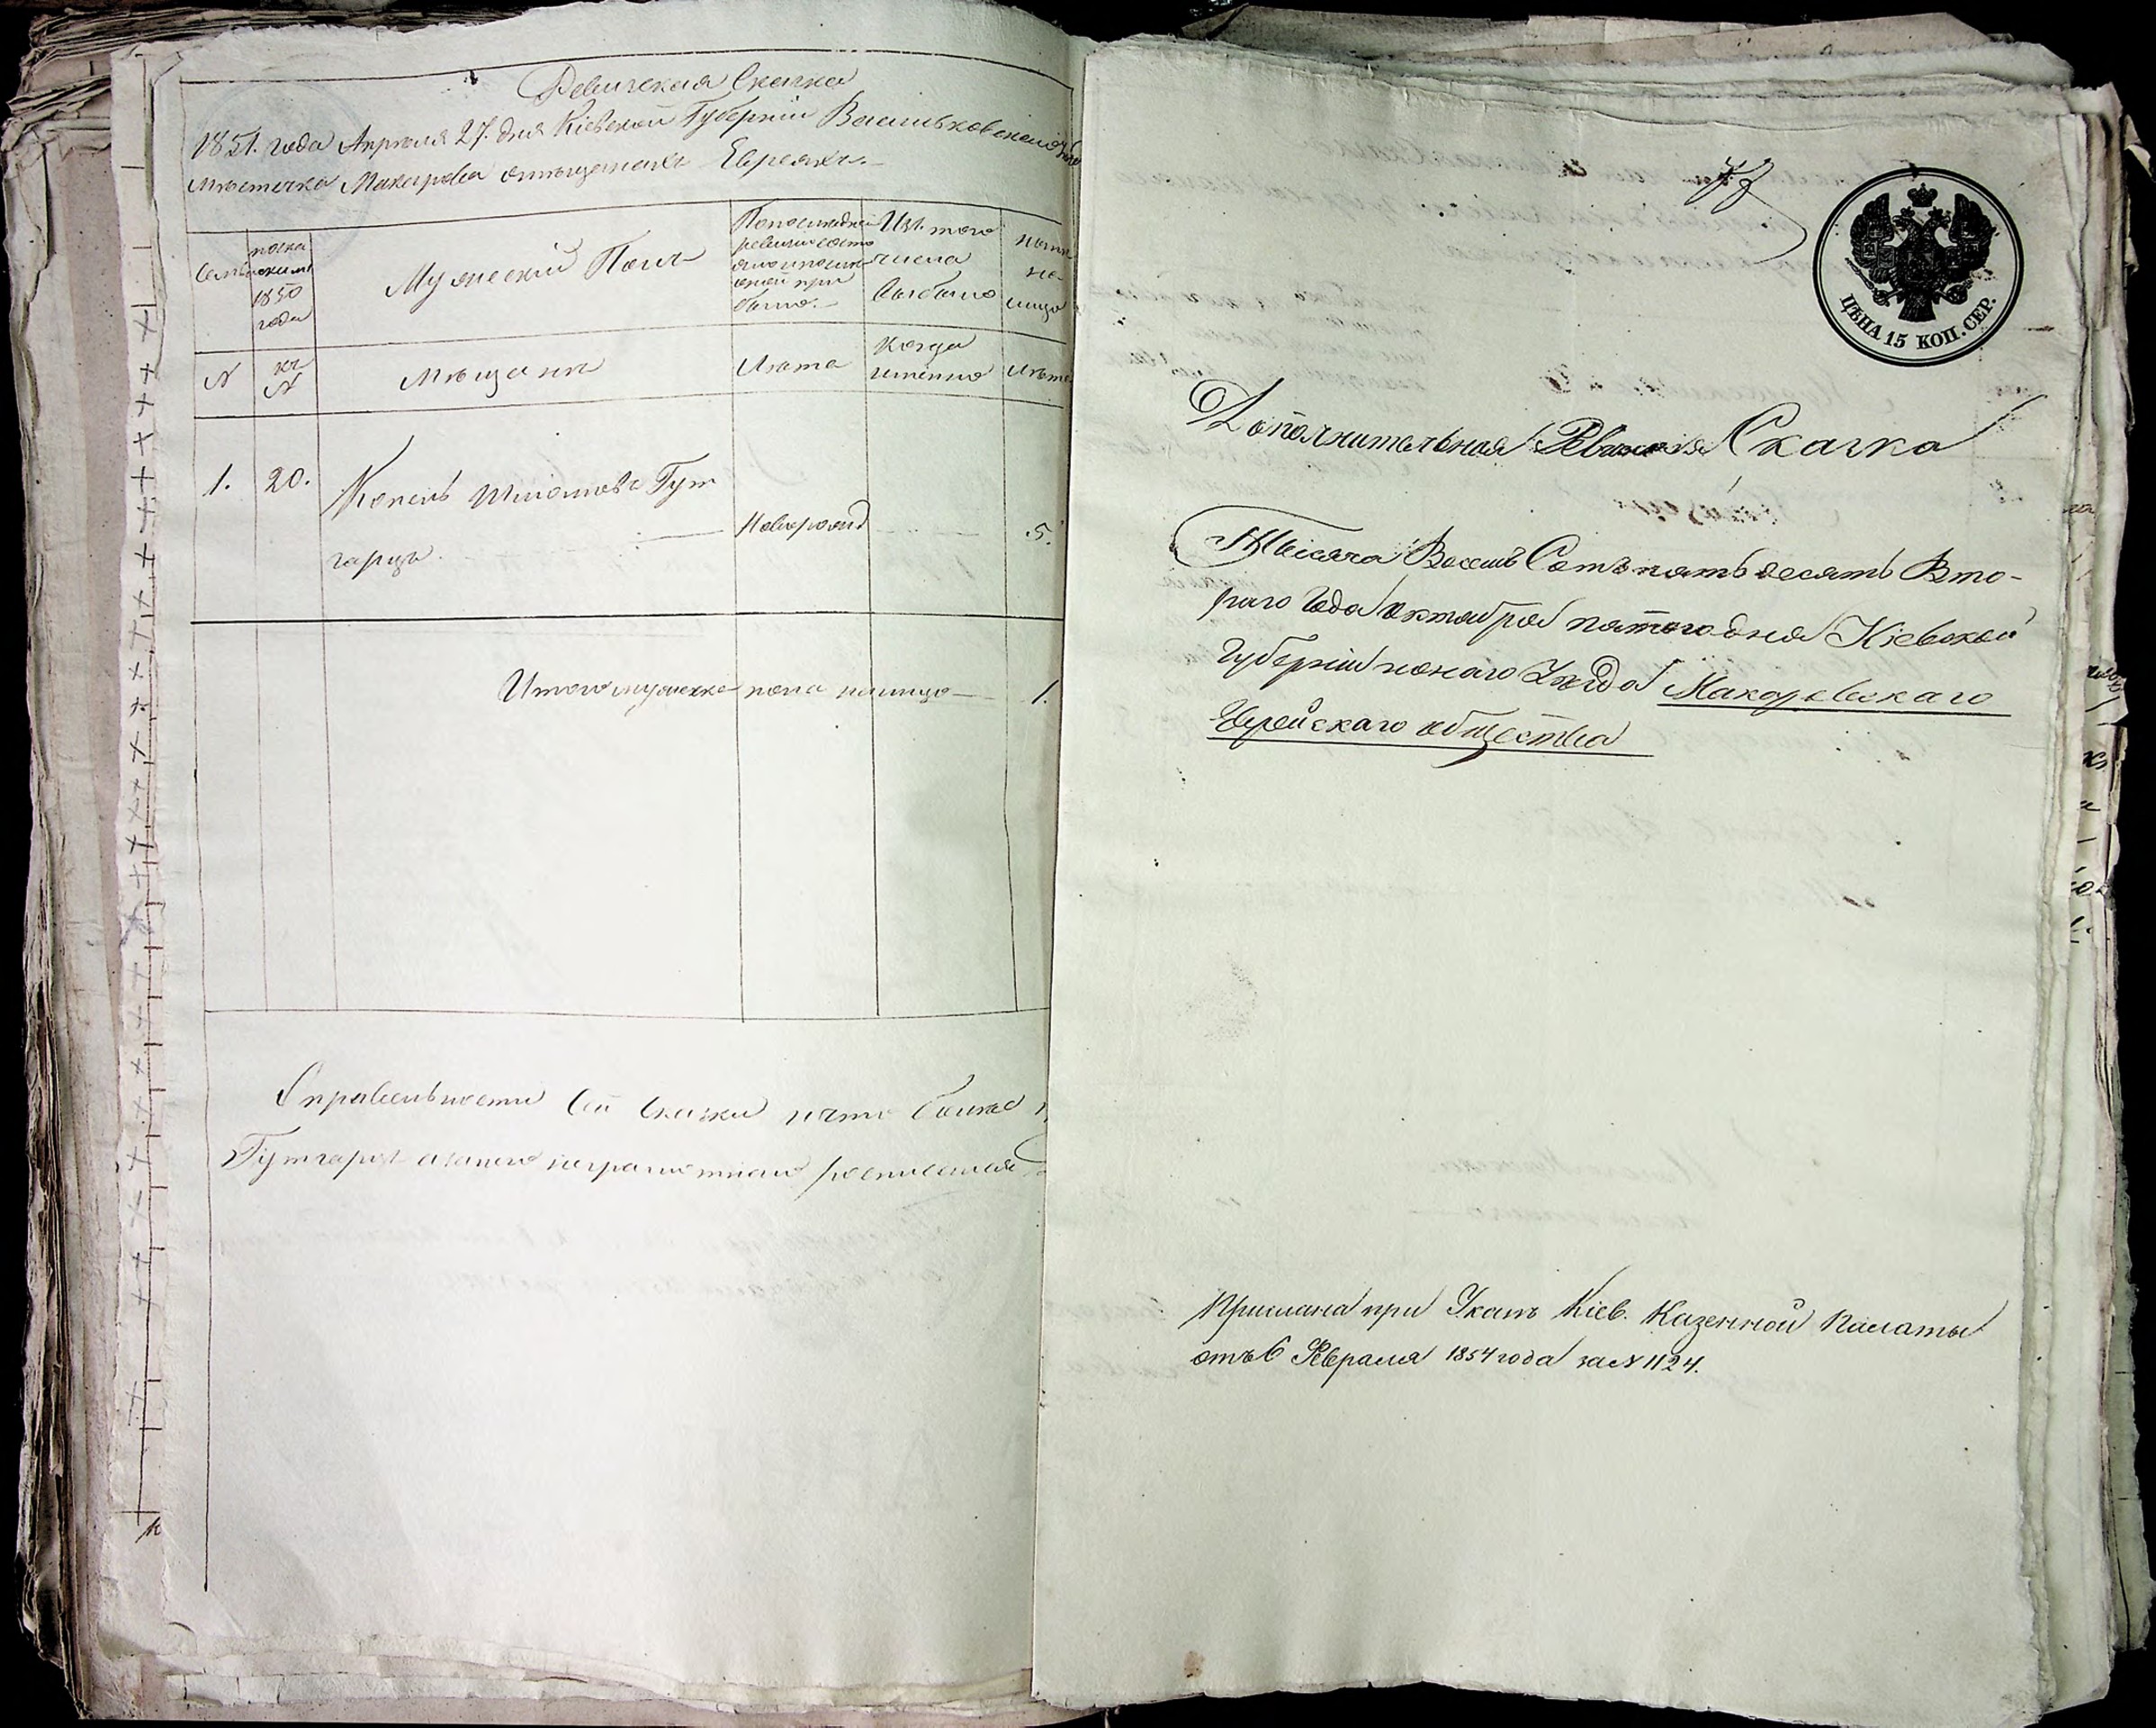 Ревизская Сказка
1851. года Апреля 27. дня Кіевской Губерніи Васильковскаго
мѣстечка Макарова о мѣщанахъ Евреяхъ.
Семьи
1850
года
Мужескій Полъ
По последней
ревизіи состо
было.
Изъ того
числа
выбыло
Нынѣ
на
лицо
N
N
Мѣщане
Лѣта
Когда
именно
Лѣта
1.
20.
Копель Шліомовъ Гут
гарцъ.
Новорожд
5.
Итого мужеска пола налицо
1.
Справедливости сей сказки и что болѣе
Гутгарцъ а за него неграмотнаго росписался
ЦѢНА 15 КОП. СЕР.
Дополнительная Ревизская Сказка
Тысяча Восемь Сотъ пятьдесятъ Вто-
раго Года Октября пятого дня Кіевской
Губерніи и онаго Уѣзда Макаровскаго
Еврейскаго общества
Прислана при Указѣ Кіев. Казенной Палаты
отъ 6 Февраля 1854 года за N 1124.